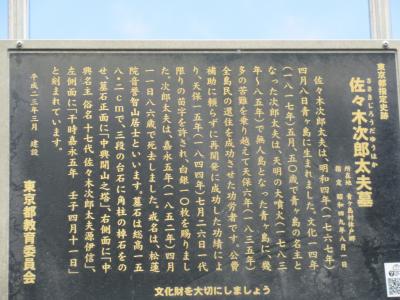 東京都指定史跡
佐々木次郎太夫墓
ささきじろうだゆうはか
所在地 青ヶ島村
指 定 昭和四九年八月一日
佐々木次郎太夫は、明和四年(一七六七)
四月八日青ヶ島に生まれました。文化一四年
(一八一七年)五月、五〇歳で青ヶ島の名主と
なった次郎太夫は、天明の大噴火(一七八三
年〜八五年)で無人島となった青ヶ島に、幾
多の苦難を乗り越えて天保六年(一八三五)
全島民の還住を成功させた功労者です。公費
補助に頼らずに再開発に成功した功績によ
り、天保一五年(一八四四)七月二六日一代
限りの苗字を許され、白銀一〇枚を賜りまし
た。次郎太夫は、嘉永五年(一八五二)四月
一一日八六歳で死去しました。戒名は、松蓮
院音誉智山居士といいます。墓石は総高一五
八・二cmで、三段の台石に角柱の棹石をの
せ、墓石正面に「中興開山之塔」、右側面に「中
興名主 俗名 十七代 佐々木次郎太夫源伊信」、
左側面に「干時嘉永五年 壬子四月十一日」
と刻まれています。
平成二三年三月 建設
東京都教育委員会
文化財を大切にしましょう